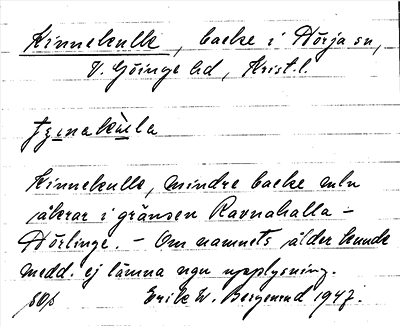 Kinnekulle, backe i Nörja sn,
V. Göinge hd, Krist.l.
Kinnekulle, mindre backe mln
åkrar i gränsen Ravnahalla –
Nörlinge. – Om namnets ålder kunde
medd. ej lämna ngn upplysning.
Erik W. Bergenrud 1947.